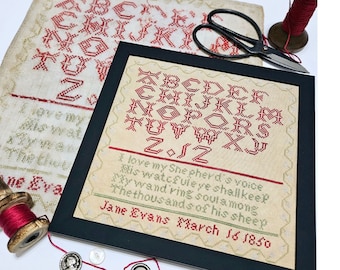 ABCDEF
GHIJKLM
NO
TU
Z
I love my
His watf
My wan
The thou
Jane Evans
ABCDEF
GHIJKLM
NOPQRS
TUVWXY
Z
I love my Shepherd's voice
His watcful eye shall keep
My wand'ring soul among
The thousands of his sheep
Jane Evans March 16 1850